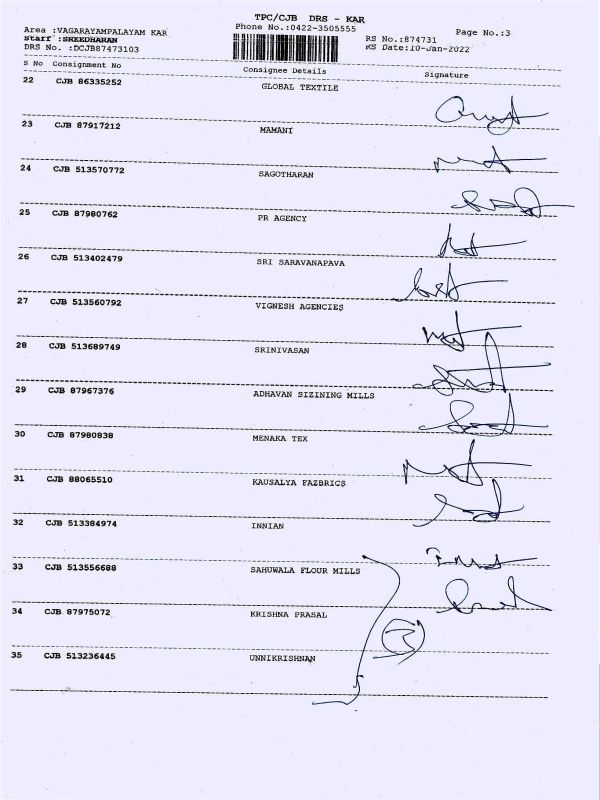 TPC/CJB DRS - KAR
Phone No.:0422-3505555
Page No.:3
Area :VAGARAYAMPALAYAM KAR
Staff :SREEDHARAN
DRS No. :DCJB87473103
RS No.:874731
RS Date:10-Jan-2022
S No Consignment No Consignee Details Signature
22 CJB 86335252 GLOBAL TEXTILE
23 CJB 87917212 MAMANI
24 CJB 513570772 SAGOTHARAN
25 CJB 87980762 PR AGENCY
26 CJB 513402479 SRI SARAVANAPAVA
27 CJB 513560792 VIGNESH AGENCIES
28 CJB 513689749 SRINIVASAN
29 CJB 87967376 ADHAVAN SIZINING MILLS
30 CJB 87980838 MENAKA TEX
31 CJB 88065510 KAUSALYA FAZBRICS
32 CJB 513384974 INNIAN
33 CJB 513556688 SAHUWALA FLOUR MILLS
34 CJB 87975072 KRISHNA PRASAL
35 CJB 513236445 UNNIKRISHNAN